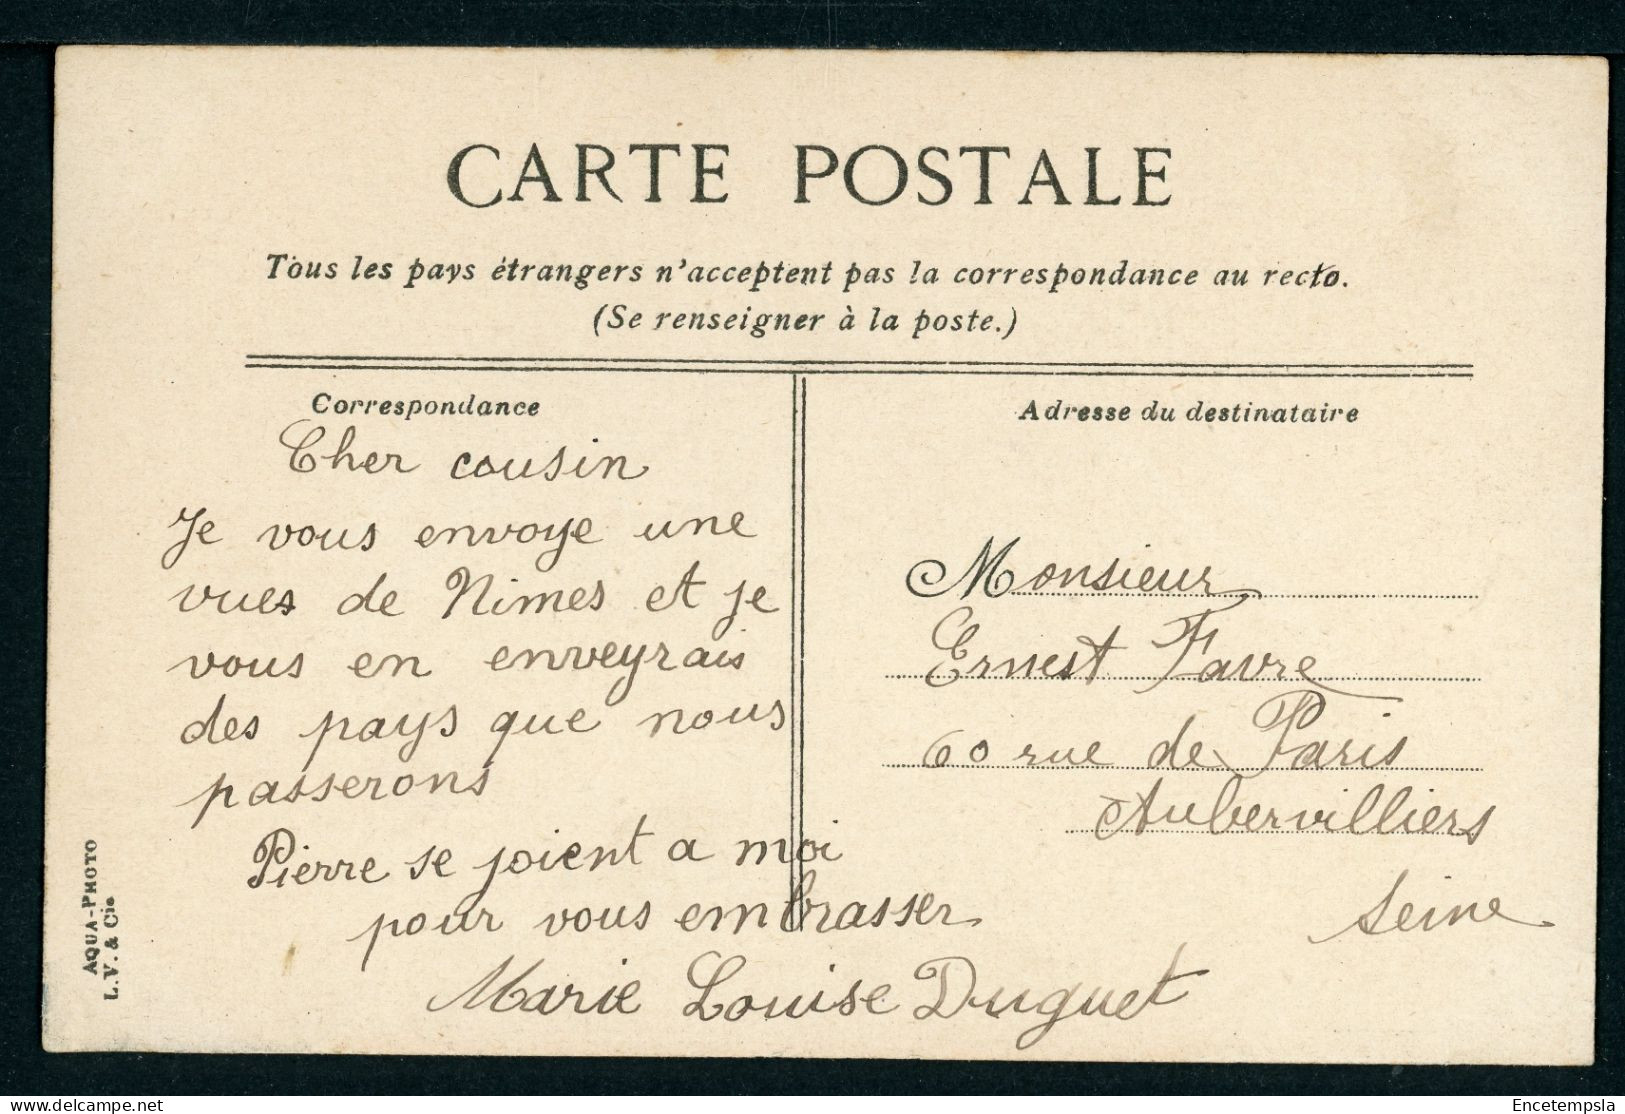 CARTE POSTALE
Tous les pays étrangers n'acceptent pas la correspondance au recto.
(Se renseigner à la poste.)
Correspondance
Cher cousin
Je vous envoye une
vues de Nimes et je
vous en enveyrais
des pays que nous
passerons
Pierre se joient a moi
pour vous embrasser
Marie Louise Duguet
Adresse du destinataire
Monsieur
Ernest Favre
60 rue de Paris
Aubervilliers
Seine
AQUA-PHOTO
L.V. & Cie
delcampe.net
Encetempsla